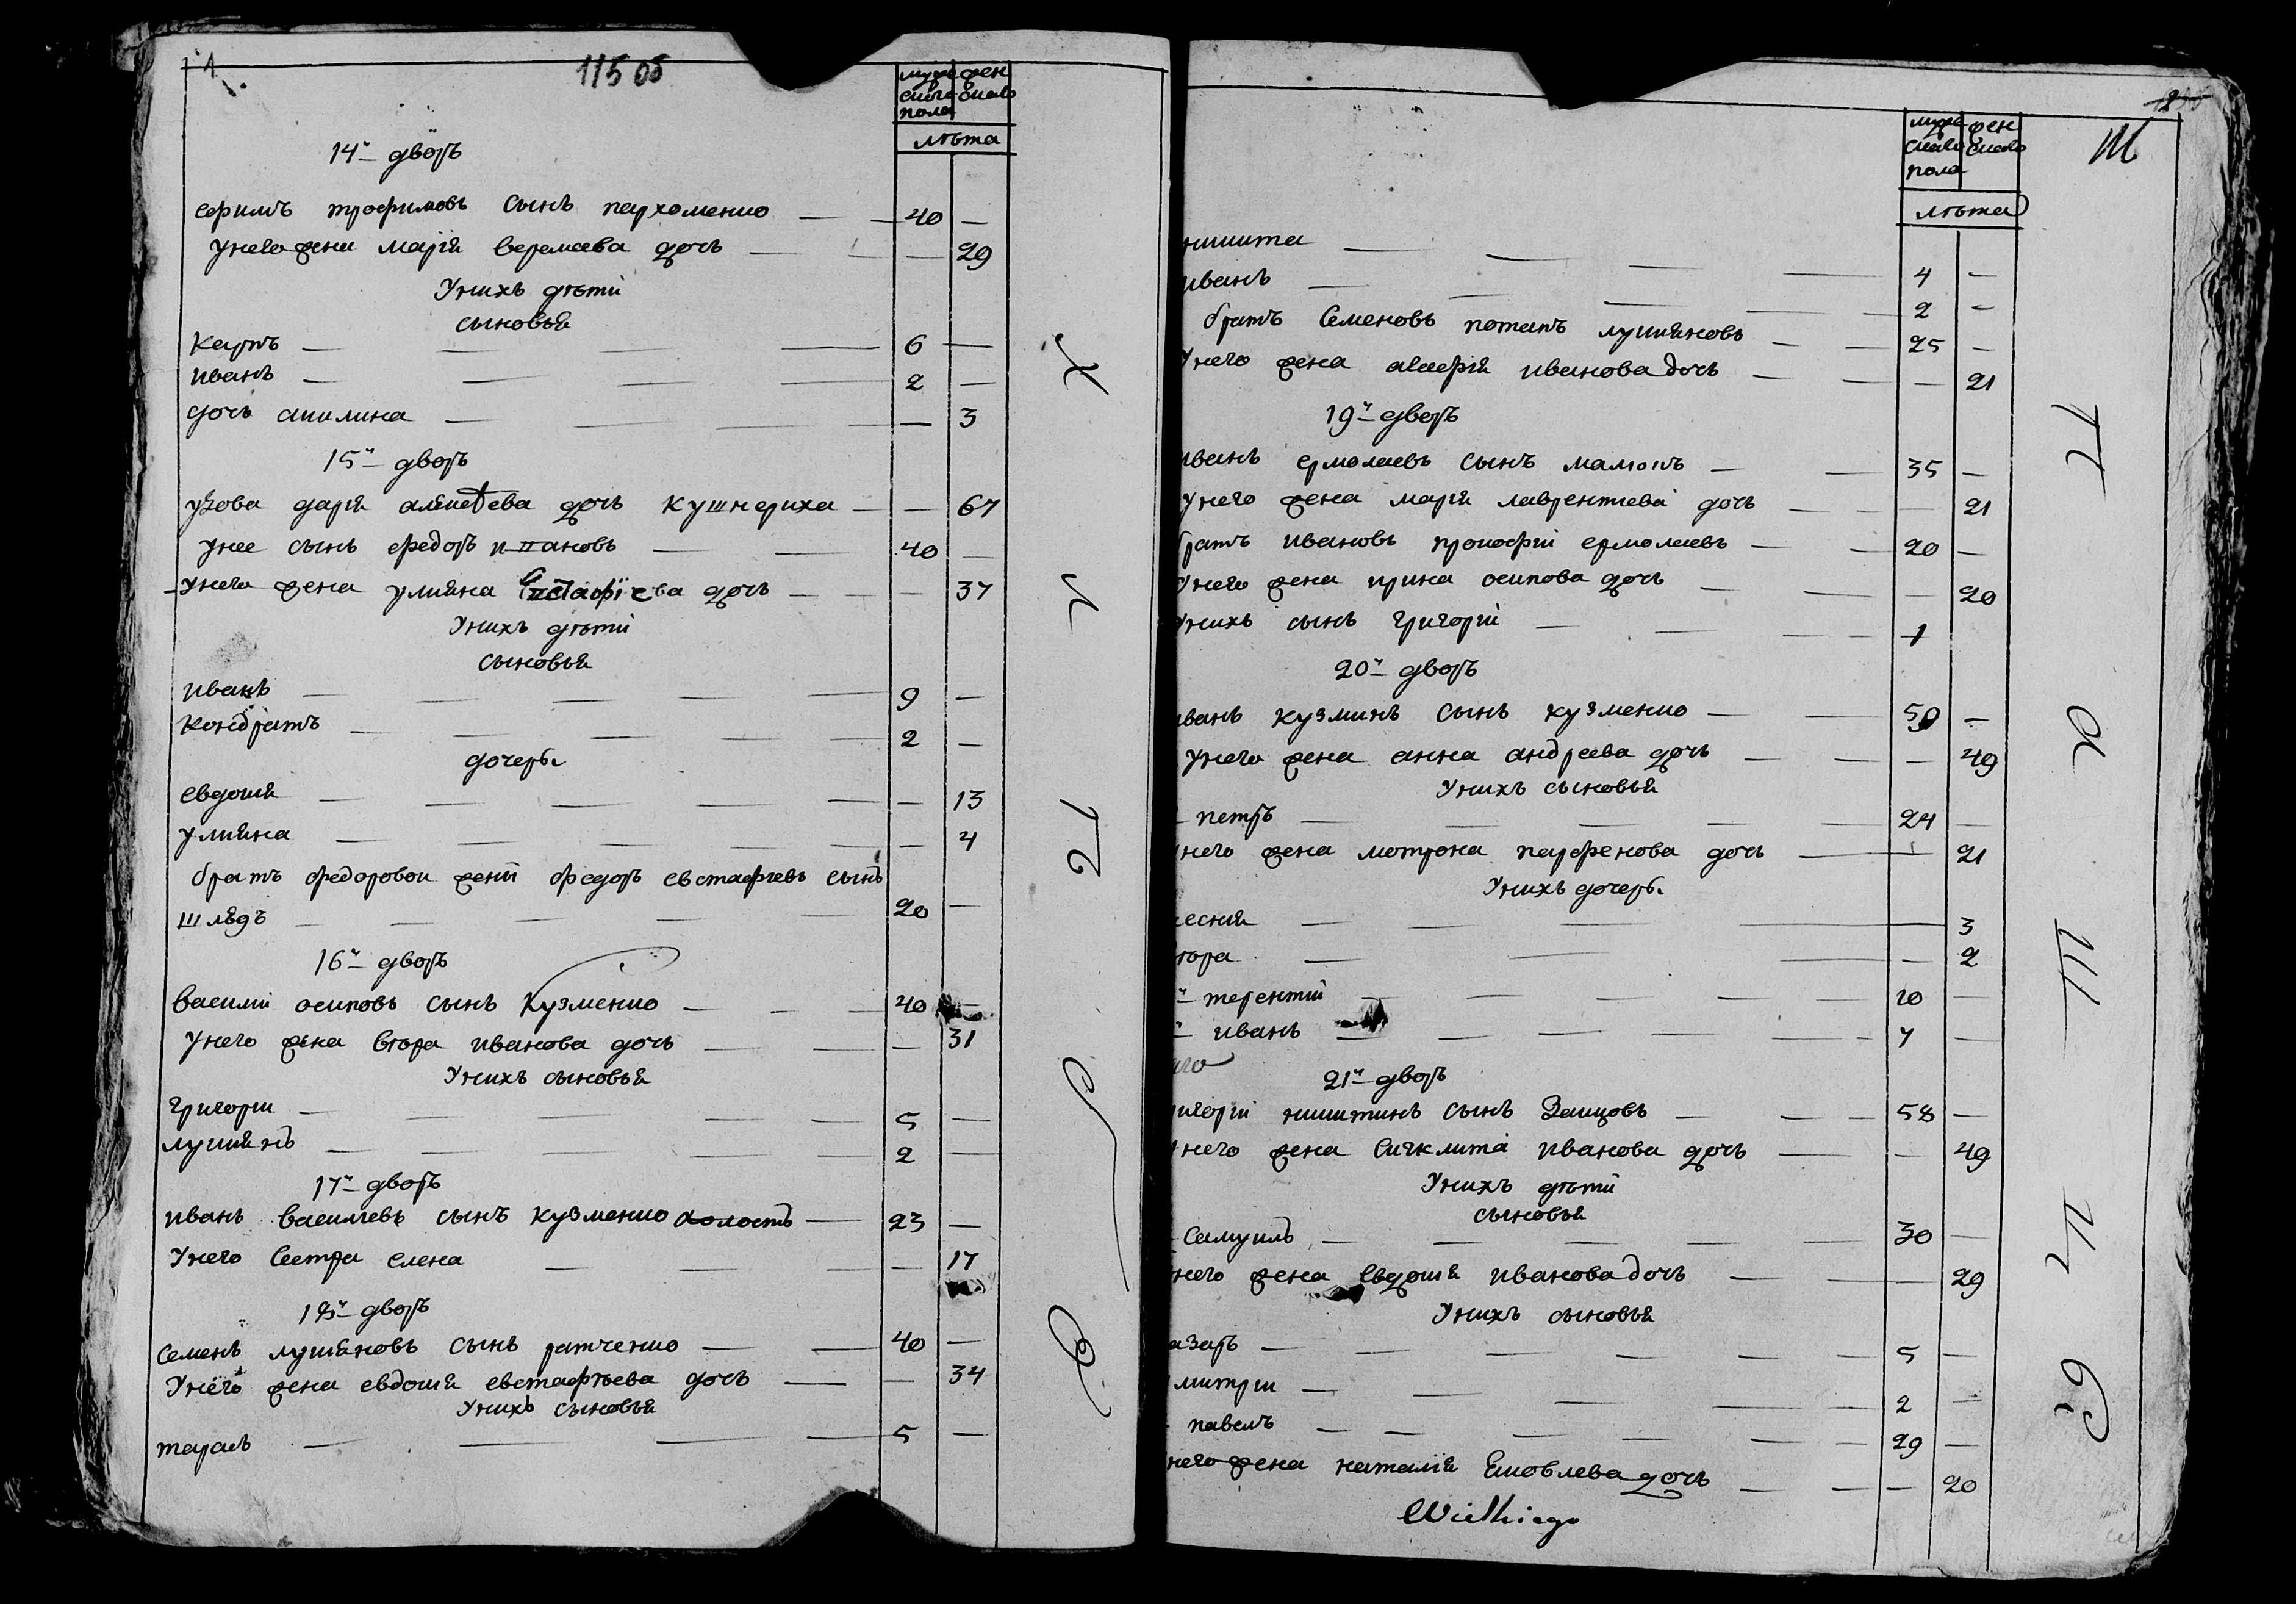 1
115 об
муже ского пола
жен ского
лѣта
14й дворъ
ефимъ трофимовъ сынъ пархоменко 40
у него жена марія веремеева дочь 29
у нихъ дѣти
сыновья
карпъ 6
иванъ 2
дочь акилина 3
15й дворъ
вдова дарія алексѣева дочь кушнериха 67
у нее сынъ федоръ ивановъ 40
у него жена улияна Евстафіева дочь 37
у нихъ дѣти
сыновья
иванъ 9
кондратъ 2
дочеры
евдокия 13
улияна 4
братъ федоровой жены федоръ евстафиевъ сынъ
швѣдъ 20
16й дворъ
василий осиповъ сынъ кузменко 40
у него жена вѣра иванова дочь 31
у нихъ сыновья
григорий 5
лукиянъ 2
17й дворъ
иванъ василиевъ сынъ кузменко холостъ 23
у него сестра елена 17
18й дворъ
семенъ лукияновъ сынъ ратченко 40
у него жена евдокия евстафъева дочь 34
у нихъ сыновья
тарасъ 5
муже ского пола
жен ского
лѣта
никита 4
иванъ 2
братъ семеновъ потапъ лукияновъ 25
у него жена агафія иванова дочь 21
19й дворъ
иванъ ермолаевъ сынъ мамонъ 35
у него жена марія лаврентиева дочь 21
братъ ивановъ прокофій ермолаевъ 20
у него жена ирина осипова дочь 20
у нихъ сынъ григорій 1
20й дворъ
иванъ кузминъ сынъ кузменко 50
у него жена анна андреева дочь 49
у нихъ сыновья
петръ 24
него жена мотрона парфенова дочь 21
у нихъ дочеры
есния 3
ѣра 2
терентий 10
иванъ 7
21й дворъ
григорій никитинъ сынъ заицовъ 58
него жена сигклита иванова дочь 49
у нихъ дѣти
сыновья
самуилъ 30
него жена евдокия иванова дочь 29
у нихъ сыновья
азаръ 5
митрий 2
павелъ 29
него жена наталія яковлева дочь 20